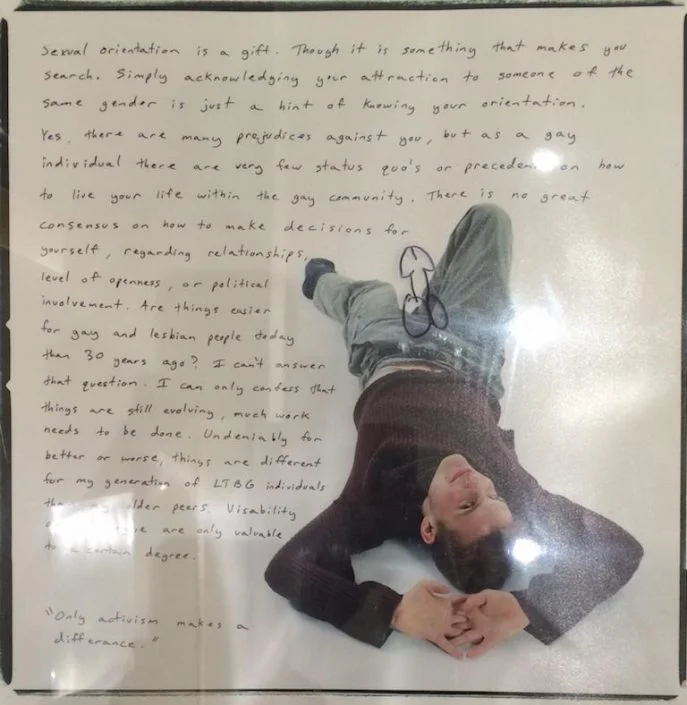 Sexual orientation is a gift. Though it is something that makes you
search. Simply acknowledging your attraction to someone of the
same gender is just a hint of knowing your orientation.
Yes, there are many prejudices against you, but as a gay
individual there are very few status quo's or on how
to live your life within the gay community. There is no great
consensus on how to make decisions for
yourself, regarding relationships,
level of openness, or political
involvement. Are things easier
for gay and lesbian people today
than 30 years ago? I can't answer
that question. I can only confess that
things are still evolving, much work
needs to be done. Undeniably for
better or worse, things are different
for my generation of LTBG individuals
older peers. Visability
are only valuable
to a certain degree.
"Only activism makes a
differance."